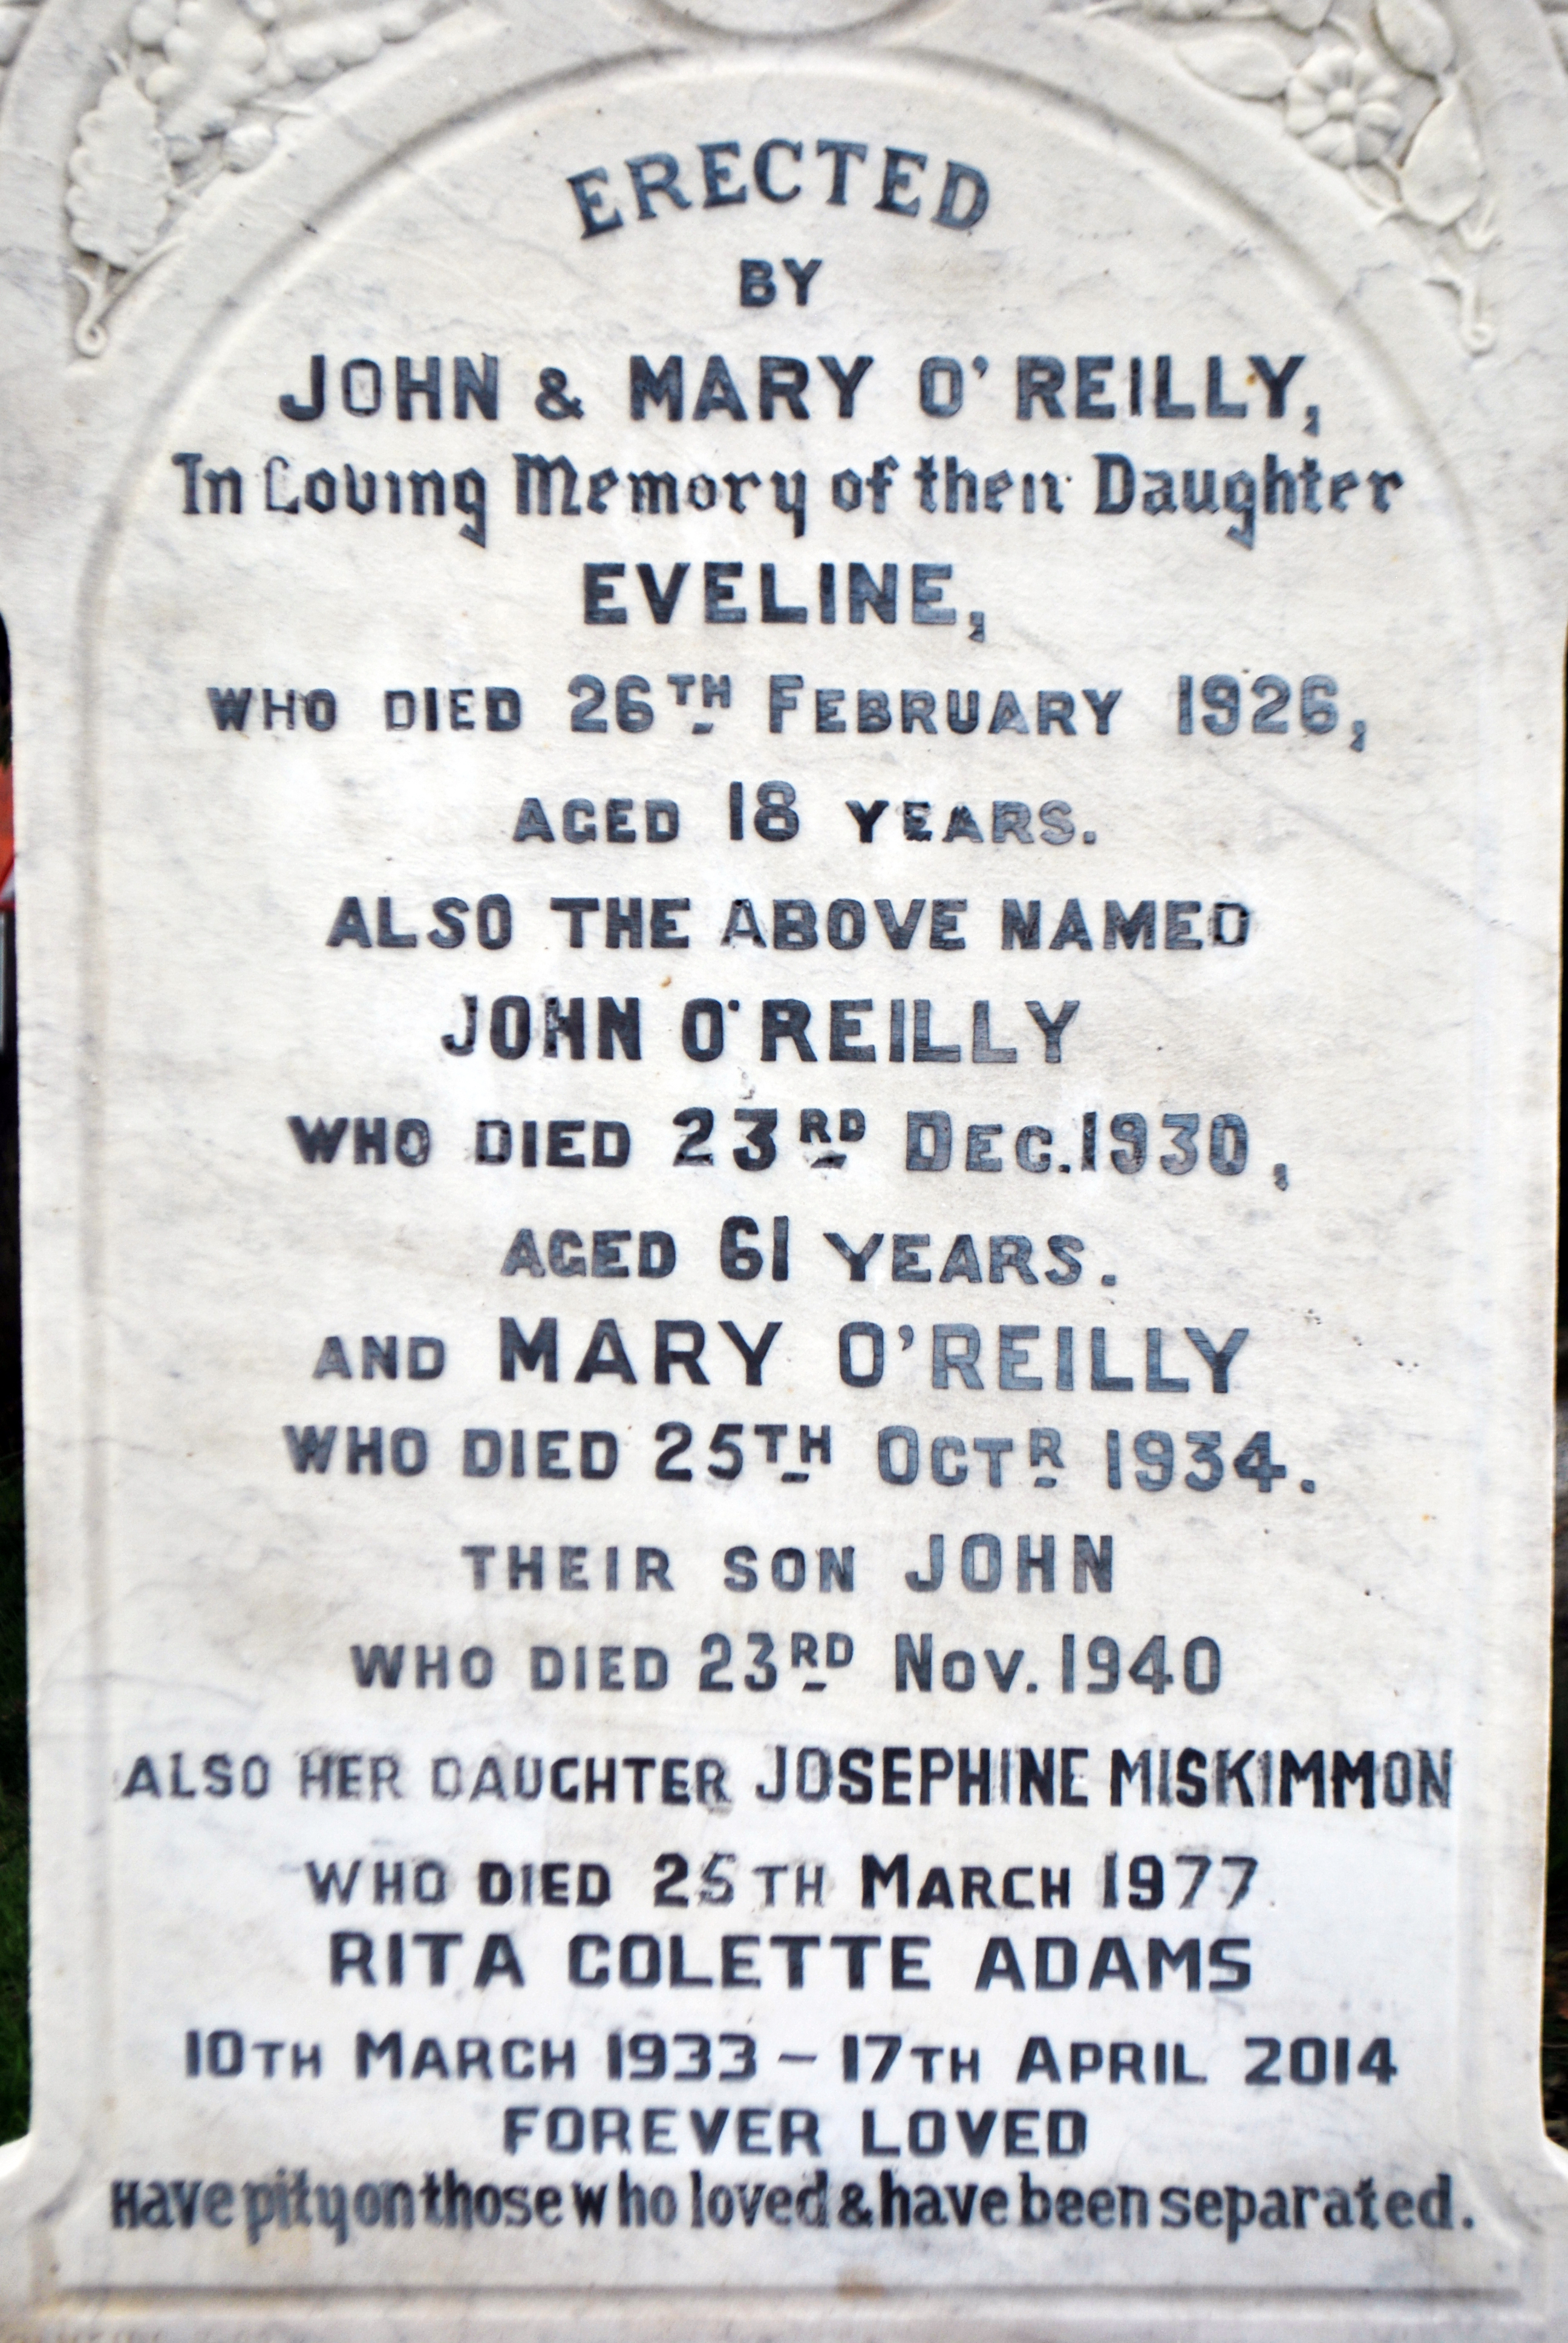 ERECTED
BY
JOHN & MARY O'REILLY,
In Loving Memory of their Daughter
EVELINE,
WHO DIED 26TH FEBRUARY 1926,
AGED 18 YEARS.
ALSO THE ABOVE NAMED
JOHN O'REILLY
WHO DIED 23RD DEC. 1930,
AGED 61 YEARS.
AND MARY O'REILLY
WHO DIED 25TH OCTR 1934.
THEIR SON JOHN
WHO DIED 23RD NOV. 1940
ALSO HER DAUGHTER JOSEPHINE MISKIMMON
WHO DIED 25TH MARCH 1977
RITA COLETTE ADAMS
10TH MARCH 1933 – 17TH APRIL 2014
FOREVER LOVED
Have pity on those who loved & have been separated.